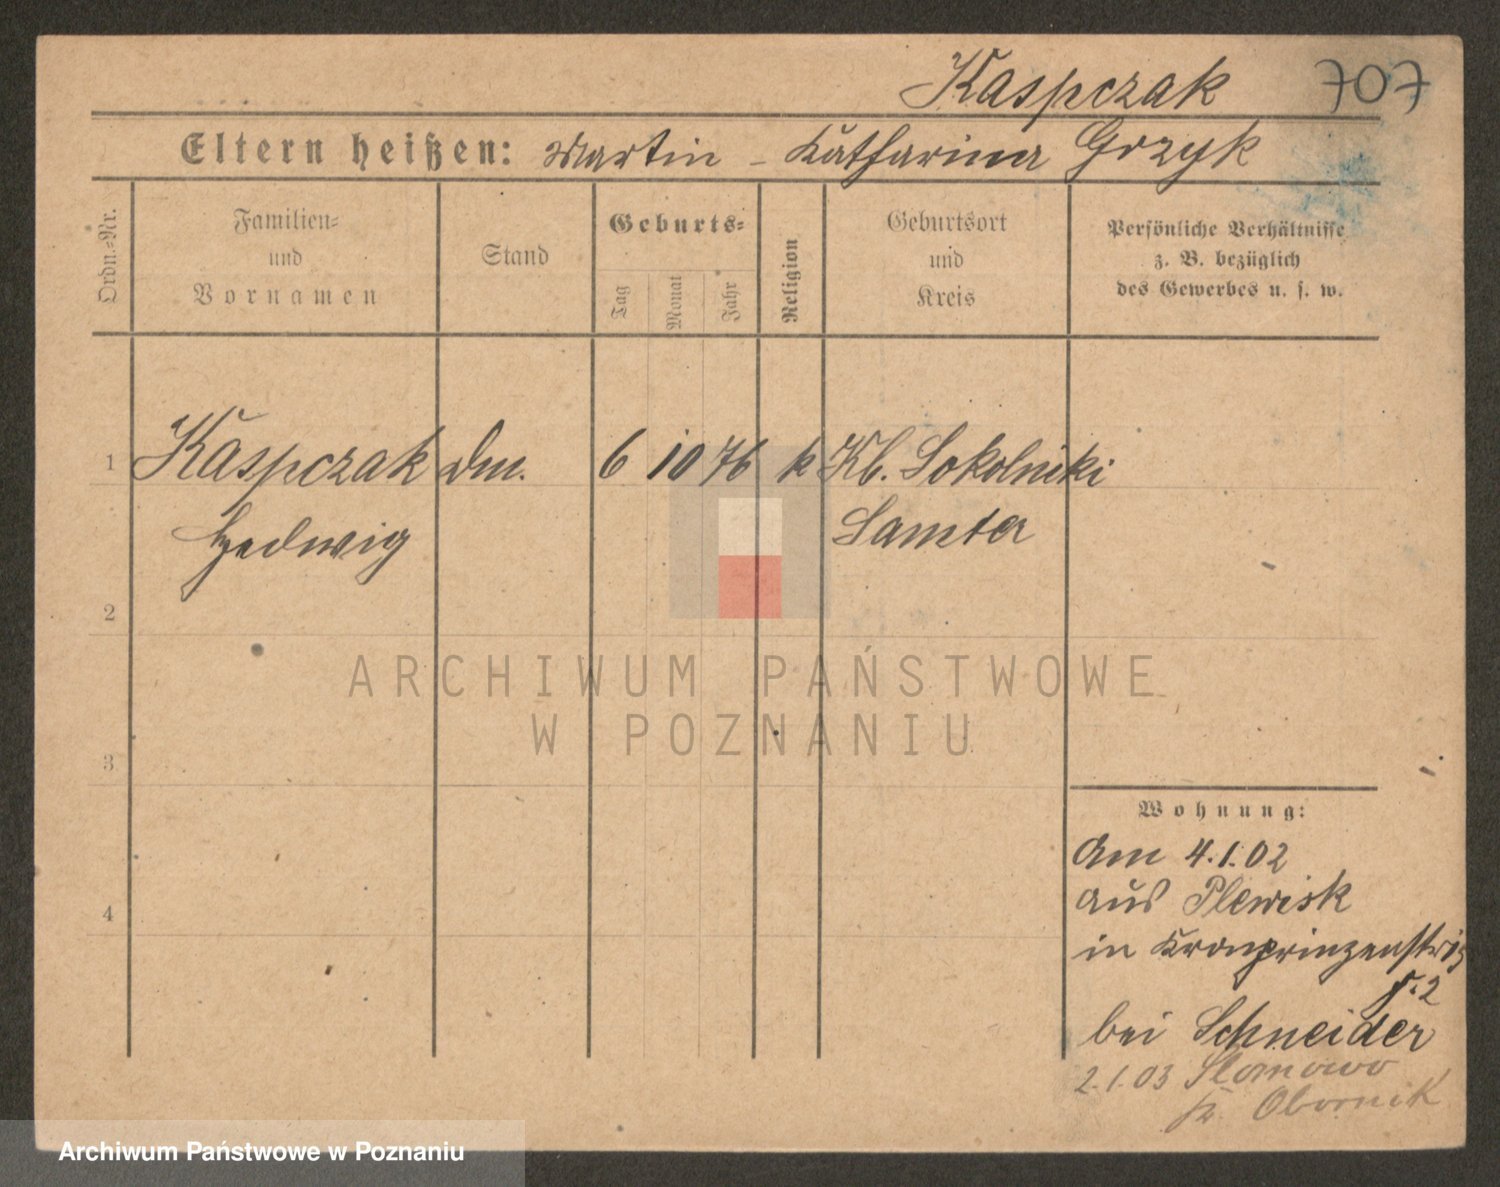 Kaspczak 707
Eltern heißen: Martin - Katharina Grzyk
Ordn.=Nr.
Familien=
und
Vornamen
Stand
Geburts=
Tag
Monat
Jahr
Religion
Geburtsort
und
Kreis
Persönliche Verhältnisse
z. B. bezüglich
des Gewerbes u. s. w.
1 Kaspczak Dm. 6 10 76 k Kl. Sokolniki
Hedwig Samter
2
3
4
Wohnung:
Am 4.1.02
aus Plewisk
in Kronprinzenstr
2
bei Schneider
2.1.03 Slomowo
Obornik
ARCHIWUM PAŃSTWOWE
W POZNANIU
Archiwum Państwowe w Poznaniu